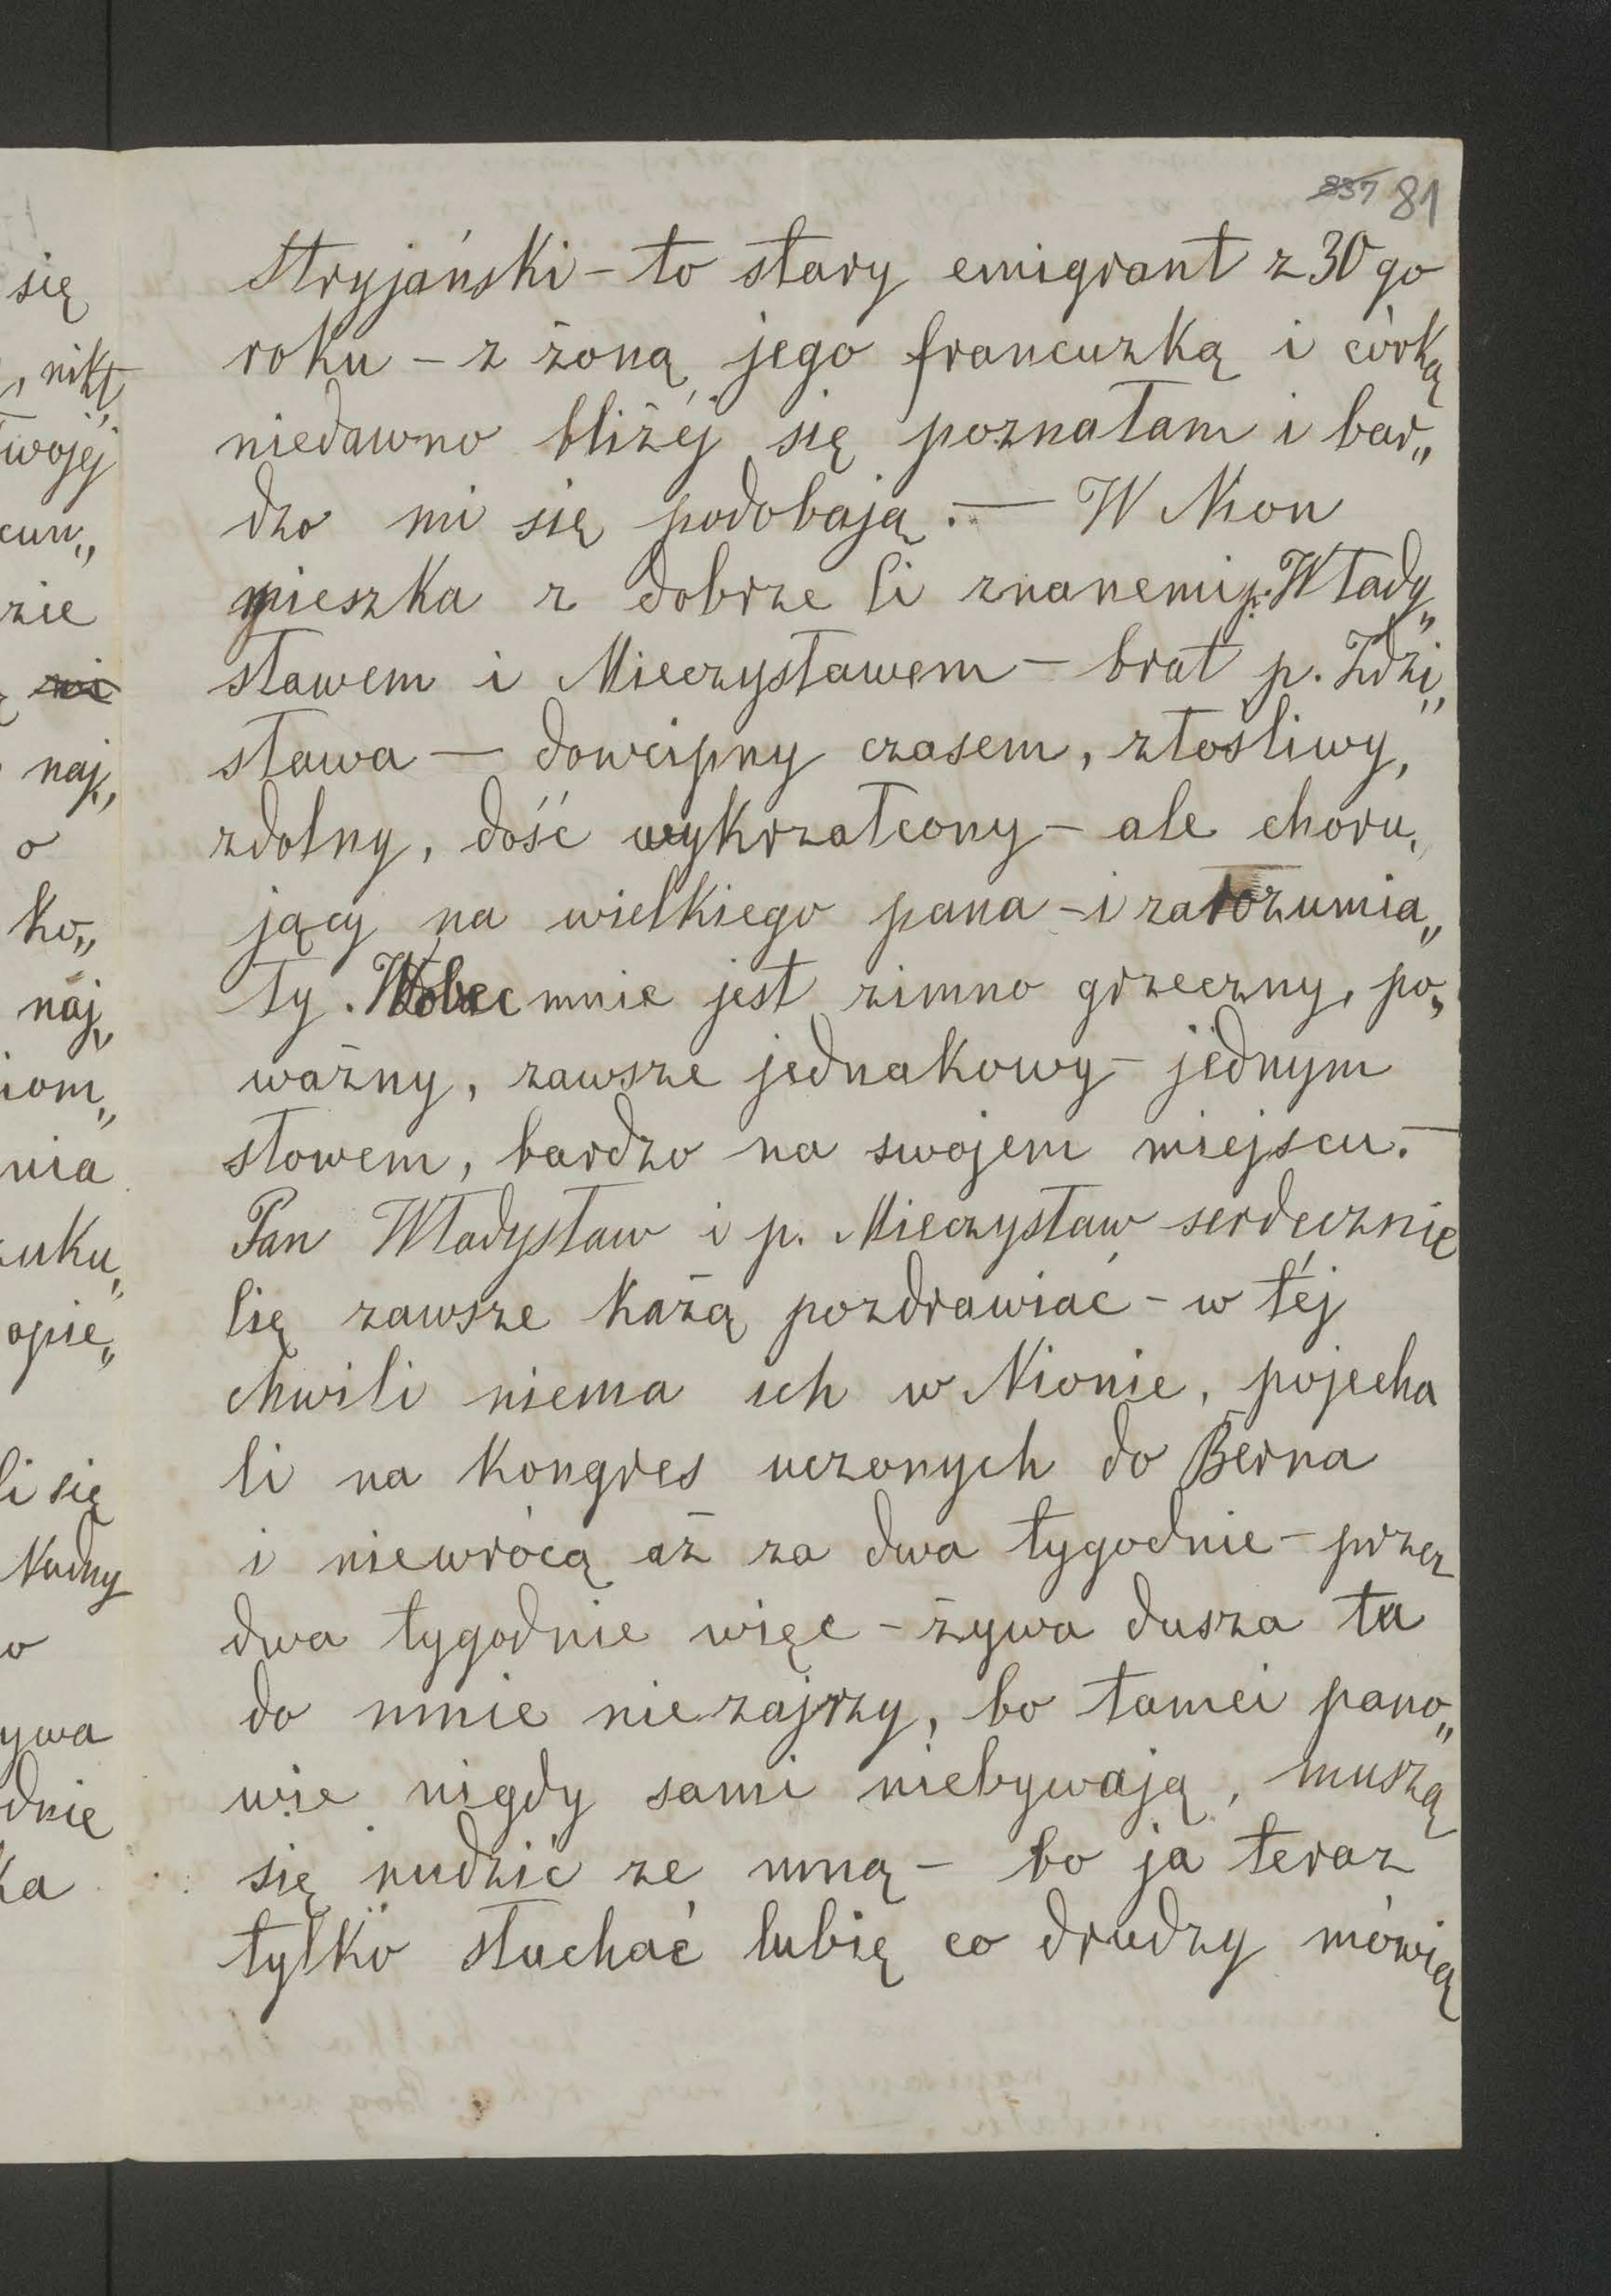 się
, nikt
Twojéj
cun„
zie
ni
naj„
o
ko„
naj„
iom„
nia
uku„
opie„
li się
Nudny
o
ywa
dnie
ka
837 81
Stryjański – to stary emigrant z 30go
roku – z żoną jego francuzką i córką
niedawno bliżéj się poznałam i bar„
dzo mi się podobają. — W Nion
mieszka z dobrze Ci znanemi p. Włady„
sławem i Mieczysławem – brat p. Zdzi„
sława — dowcipny czasem, złośliwy,
zdolny, dość wykrzałcony – ale choru„
jący na wielkiego pana – i zarozumia„
ły. Wobec mnie jest zimno grzeczny, po„
ważny, zawsze jednakowy – jednym
słowem, bardzo na swojem miejscu. –
Pan Władysław i p. Mieczysław serdecznie
Cię zawsze każą pozdrawiać – w téj
chwili niema ich w Nionie, pojecha
li na kongres uczonych do Berna
i niewrócą aż za dwa tygodnie – przez
dwa tygodnie więc – żywa dusza tu
do mnie niezajrzy, bo tamci pano„
wie nigdy sami niebywają, muszą
się nudzić ze mną – bo ja teraz
tylko słuchać lubię co drudzy mówią